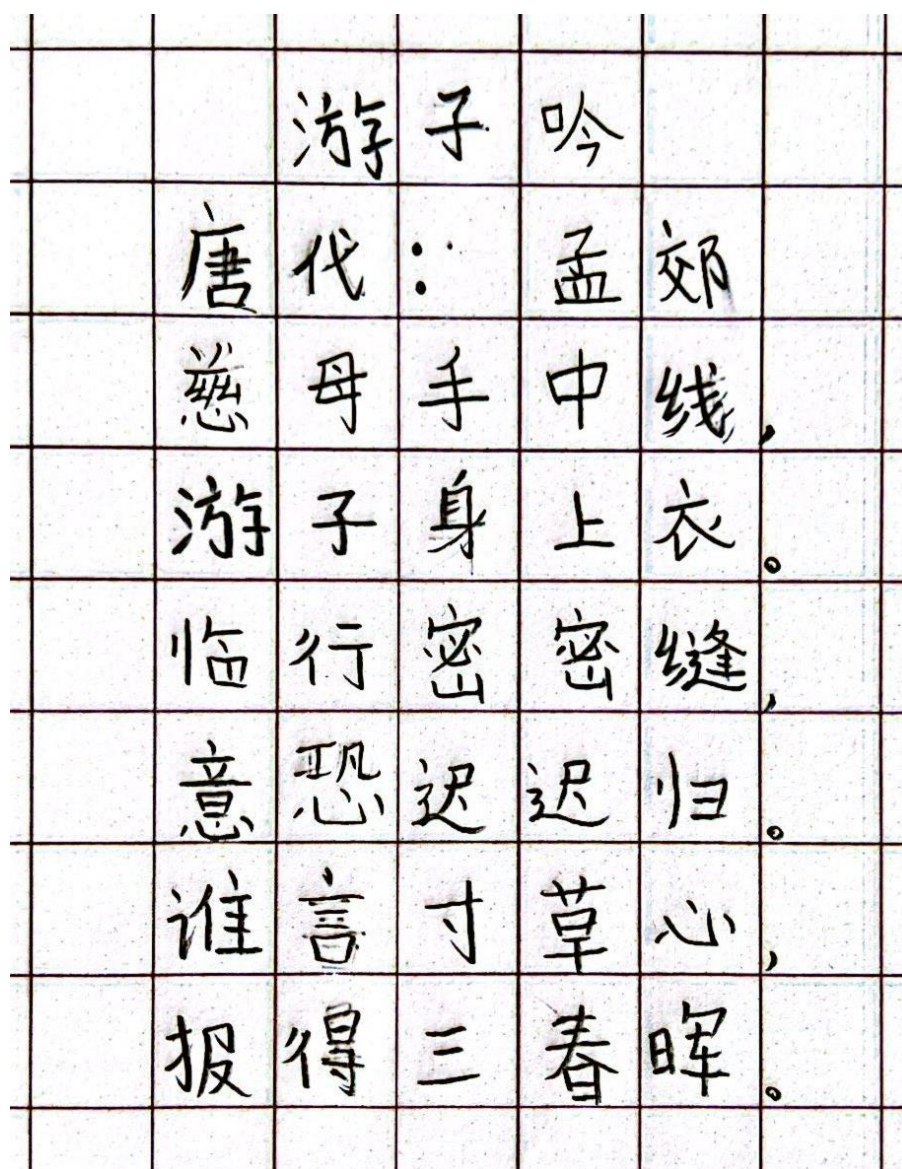 游子吟
唐代：孟郊
慈母手中线，
游子身上衣。
临行密密缝，
意恐迟迟归。
谁言寸草心，
报得三春晖。